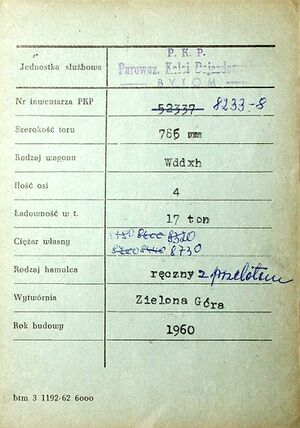 P. K. P.
Jednostka służbowa Parowoz. Kolei Dojazdow
BYTOM
Nr inwentarza PKP 52337 8233-8
Szerokość toru 786 mm
Rodzaj wagonu Wddxh
Ilość osi 4
Ładowność w t. 17 ton
8600 8320
Ciężar własny 8730
Rodzaj hamulca ręczny z przelotem
Wytwórnia Zielona Góra
Rok budowy 1960
btm 3 1192-62 6000